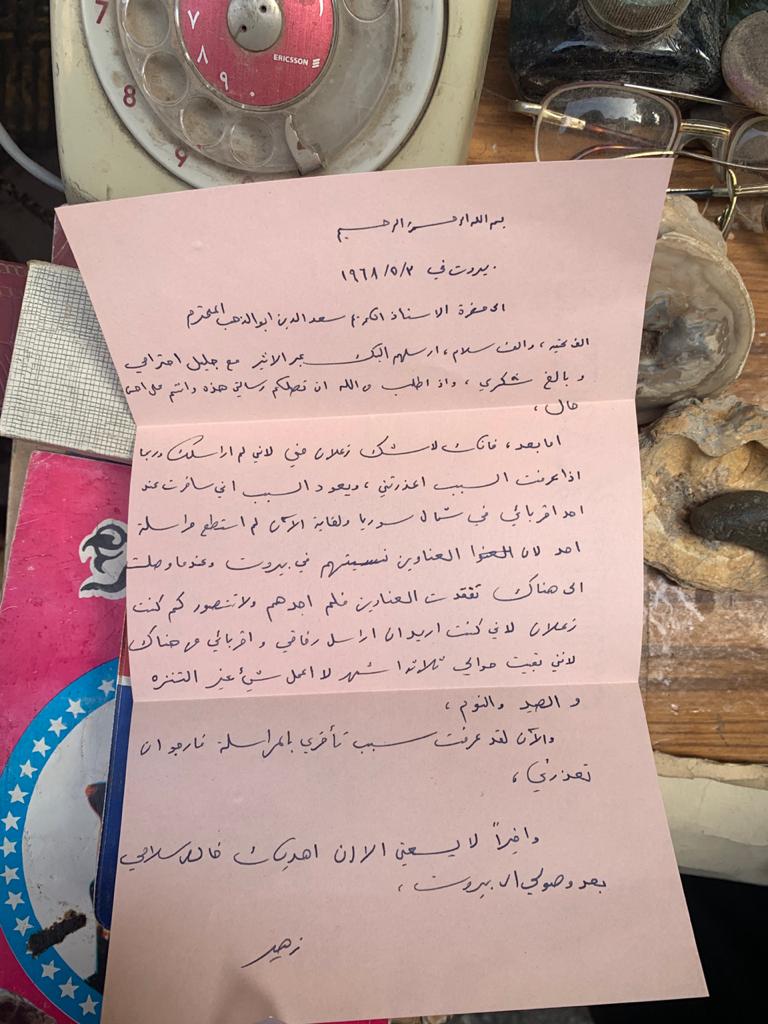 7
8
9
١
٧
٨
٩
٠
ERICSSON
بسم الله الرحمن الرحيم
بيروت في ١٩٦٨/٥/٣
الى حضرة الاستاذ الكريم سعد الدين ابو الذهب المحترم
الف تحية، والف سلام، ارسلهم اليك عبر الاثير مع جليل احترامي
و بالغ شكري، واذ اطلب من الله ان تصلكم رسالتي هذه وانتم على احسن
حال،
اما بعد، فانك لاشك زعلان مني لاني لم اراسلك وربما
اذا عرفت السبب اعذرتني، ويعود السبب اني سافرت عند
احد اقربائي في شمال سوريا ولغاية الآن لم استطع مراسلة
احد لان العناوين نسيتهم في بيروت وعندما وصلت
الى هناك تفقدت العناوين فلم اجدهم ولا تتصور كم كنت
زعلان لاني كنت اريد ان اراسل رفاقي و اقربائي من هناك
لانني بقيت حوالي ثلاثة اشهر لا اعمل شيئ غير التنزه
و الصيد والنوم،
والآن لقد عرفت سبب تأخري بالمراسلة فارجو ان
تعذرني،
واخيراً لا يسعني الا ان اهديك خالص سلامي
بعد وصولي الى بيروت،
زهير